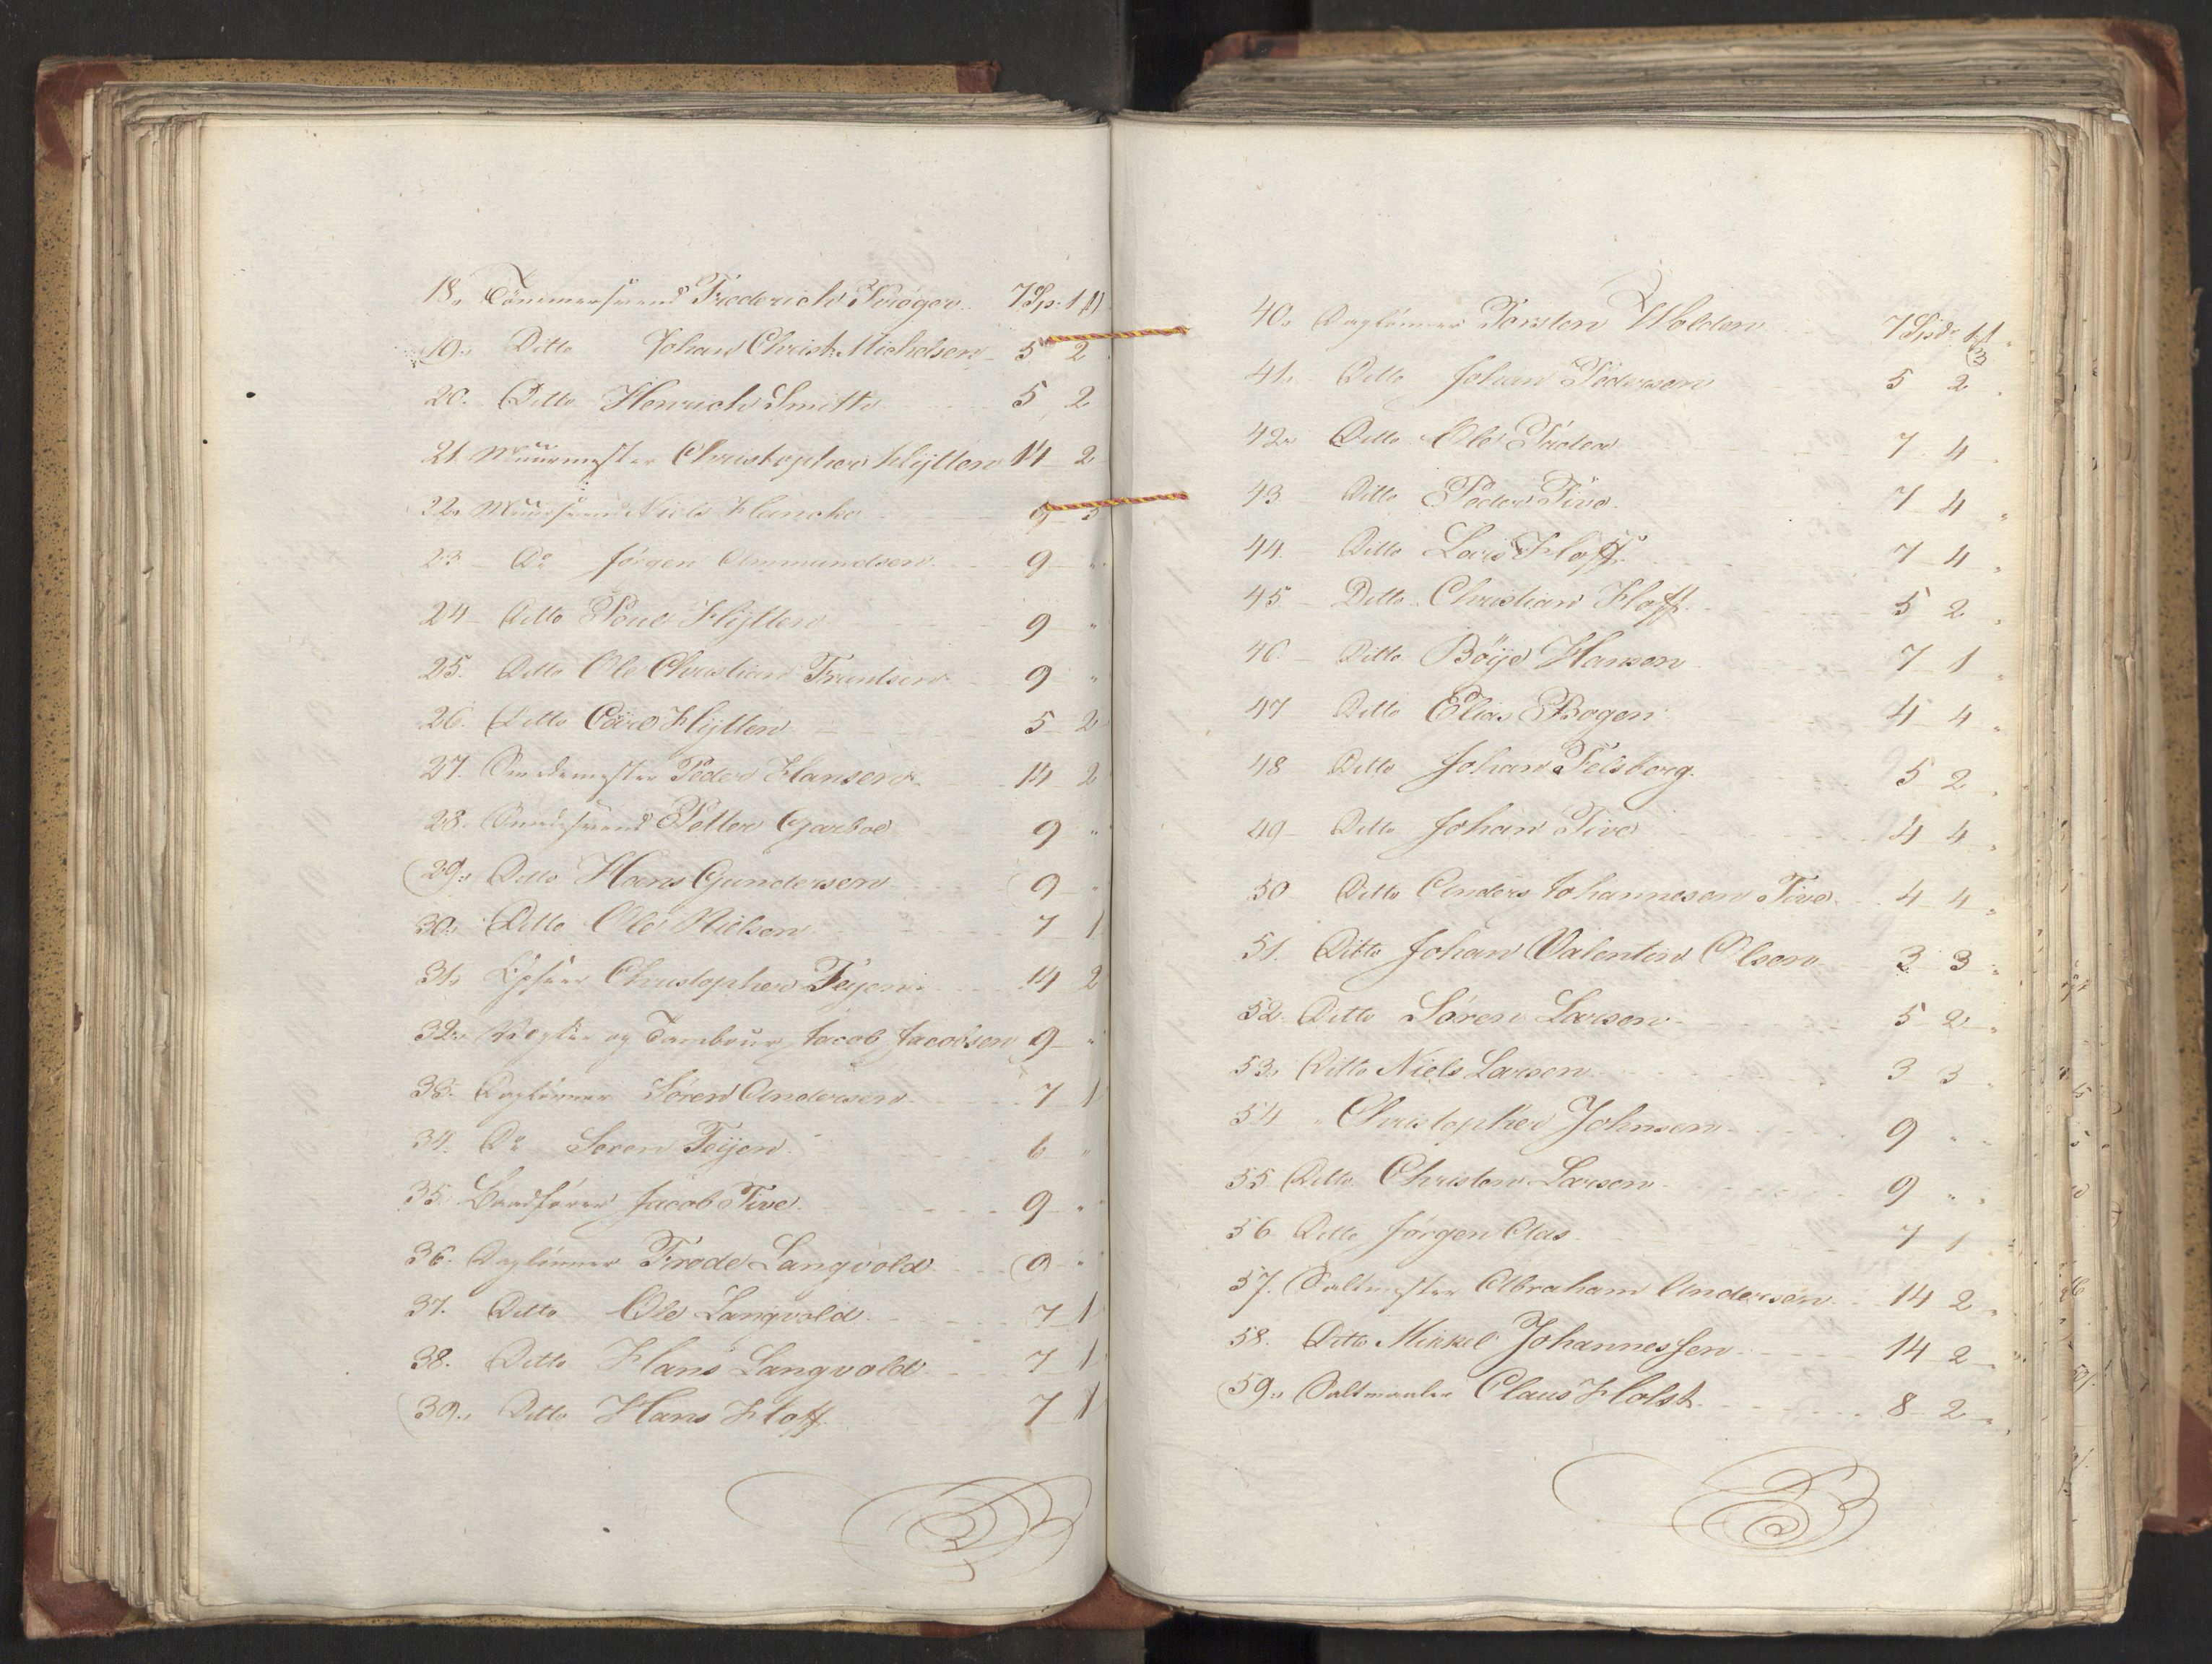 18. Tömmersvend Frederich Krøger 7 Sp: 1 
19. Ditto Johan Christ: Michelsen 5 2
20. Ditto Henrich Smith 5 2
21. Muurmester Christopher Flytten 14 2
22. Muursvend Niels Klincke 9
23 Do Jørgen Ammundsen 9 "
24 Ditto Poul Flytten 9 "
25. Ditto Ole Christian Frantsen 9 "
26. Ditto Carl Flytten 5 2
27. Smedemester Peder Hansen 14 2
28. Smedsvend Petter Garboe 9 "
29. Ditto Hans Gundersen 9 "
30. Ditto Ole Nielsen 7 1
31. Christopher Feyen 14 2
32. Vægter og Tambour Jacob Jacobsen 9 "
33. Daglønner Søren Andersen 7 1
34. Do Søren Feyen 6 "
35. Jacob Five 9 "
36. Daglønner Frode Langvold 9 "
37. Ditto Ole Langvold 7 1
38. Ditto Hans Langvold 7 1
39. Ditto Hans Kloff 7 1
40. Daglønner Torsten Wolden 7 Spd: 1
41. Ditto Johan Pedersen 5 2
42. Ditto Ole 7 4
43 Ditto Peder Five 7 4
44. Ditto Lars Kloff 7 4
45 Ditto Christian Kloff 5 2
46. Ditto Böÿe Hansen 7 1
47 Ditto Elias Bogen 4 4
48 Ditto Johan Felsberg 5 2
49 Ditto Johan Five 4 4
50 Ditto Anders Johannesen Five 4 4
51. Ditto Johan Valentin Olsen 3 3
52 Ditto Søren Larsen 5 2
53. Ditto Niels Larsen 3 3
54 " Christopher Johnsen 9 " "
55 Ditto Christen Larsen 9 " "
56 Ditto Jørgen Olas 7 1
57. Saltmester Abraham Andersen 14 2
58. Ditto Mikkel Johannessen 14 2
59. Saltmaaler Claus Holst 8 2